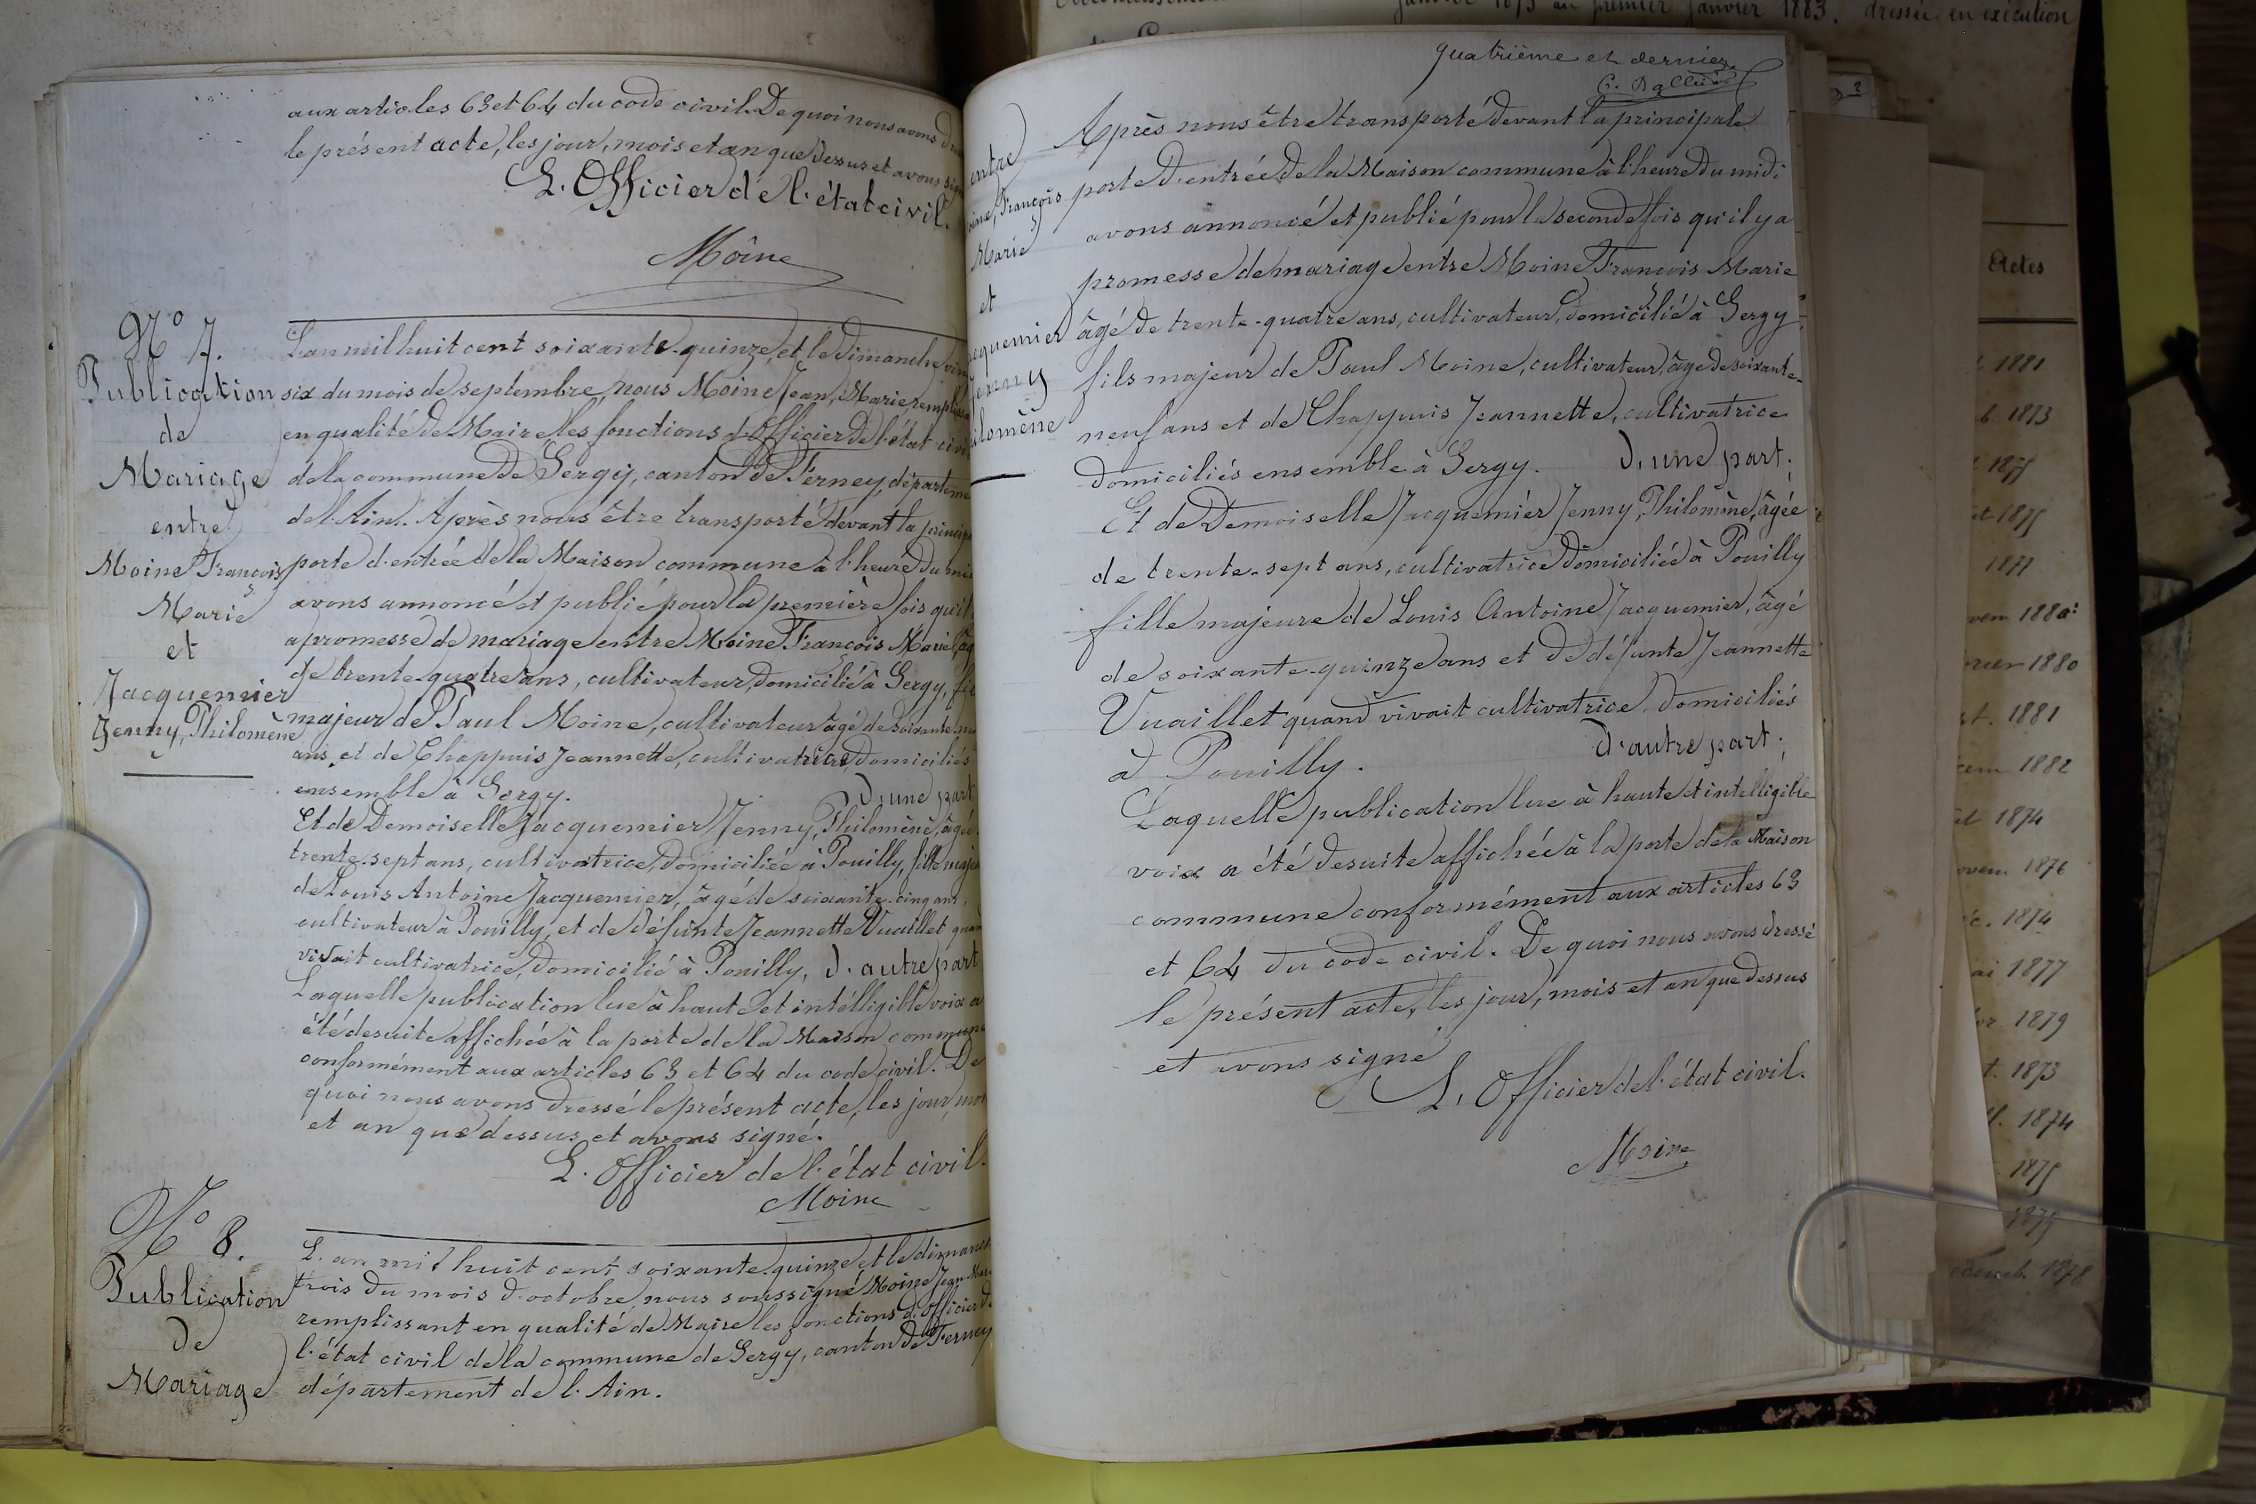 aux articles 63 et 64 du code civil. De quoi nous avons
le présent acte, les jour, mois et an que dessus et avons
L. Officier de l'état civil.
Moine
N° 7.
Publication
de
Mariage
entre
Moine François
Marie
et
Jacquemier
Jenny, Philomène
L'an mil huit cent soixante-quinze, et le Dimanche
six du mois de septembre, nous Moine Jean, Marie,
en qualité de Maire, les fonctions d'Officier de l'état
de la commune de Sergy, canton de Ferney,
de l'Ain. Après nous être transporté devant la
porte d'entrée de la Maison commune à l'heure du
avons annoncé et publié pour la première fois
a promesse de mariage entre Moine François Marie,
de trente-quatre ans, cultivateur, domicilié à Sergy,
majeur de Paul Moine, cultivateur âgé de soixante
ans, et de Chappuis Jeannette, cultivatrice, domiciliés
ensemble à Sergy. d'une part
Et de Demoiselle Jacquemier Jenny, Philomène,
trente-sept ans, cultivatrice, domiciliée à Pouilly, fille
de Louis Antoine Jacquemier, âgé de soixante-cinq ans,
cultivateur à Pouilly, et de défunte Jeannette Vuaillet
vivait cultivatrice, domicilié à Pouilly, d'autre part
Laquelle publication lue à haute et intelligible voix a
été desuite affichée à la porte de la Maison
conformément aux articles 63 et 64 du code civil. De
quoi nous avons dressé le présent acte, les jour,
et an que dessus et avons signé.
L. Officier de l'état civil.
Moine
N° 8.
Publication
de
Mariage
L'an mil huit cent soixante-quinze et le
trois du mois d'octobre, nous soussigné Moine Jean
remplissant en qualité de Maire les fonctions d'Officier
l'état civil de la commune de Sergy, canton de Ferney
département de l'Ain.
quatrième et dernier
entre
François
Marie
et
Jenny
Après nous être transporté devant la principale
porte d'entrée de la Maison commune à l'heure du midi
avons annoncé et publié pour la seconde fois qu'il y a
promesse de mariage entre Moine François Marie
âgé de trente-quatre ans, cultivateur, domicilié à Sergy
fils majeur de Paul Moine, cultivateur, âgé de soixante-
neuf ans et de Chappuis Jeannette, cultivatrice
domiciliés ensemble à Sergy. d'une part;
Et de Demoiselle Jacquemier Jenny, Philomène, âgée
de trente-sept ans, cultivatrice domiciliée à Pouilly
fille majeure de Louis Antoine Jacquemier, âgé
de soixante-quinze ans et de défunte Jeannette
Vuaillet quand vivait cultivatrice, domiciliés
à Pouilly. d'autre part;
Laquelle publication lue à haute et intelligible
voix a été desuite affichée à la porte de la Maison
commune conformément aux articles 63
et 64 du code civil. De quoi nous avons dressé
le présent acte, les jour, mois et an que dessus
et avons signé
L. Officier de l'état civil.
Moine
janvier 1873 au premier janvier 1883. dressée en exécution
Actes
1881
1873
1875
1875
1877
1880
1880
1881
1882
1874
1876
1874
1877
1879
1873
1874
1875
1875
1878